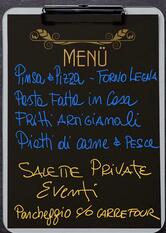 MENÙ
Pinsa & Pizza - FORNO LEGNA
Pasta Fatta in Casa
FRITTI ARTIGIANALI
Piatti di carne & PESCE
SALETTE PRIVATE
Eventi
Parcheggio c/o CARREFOUR